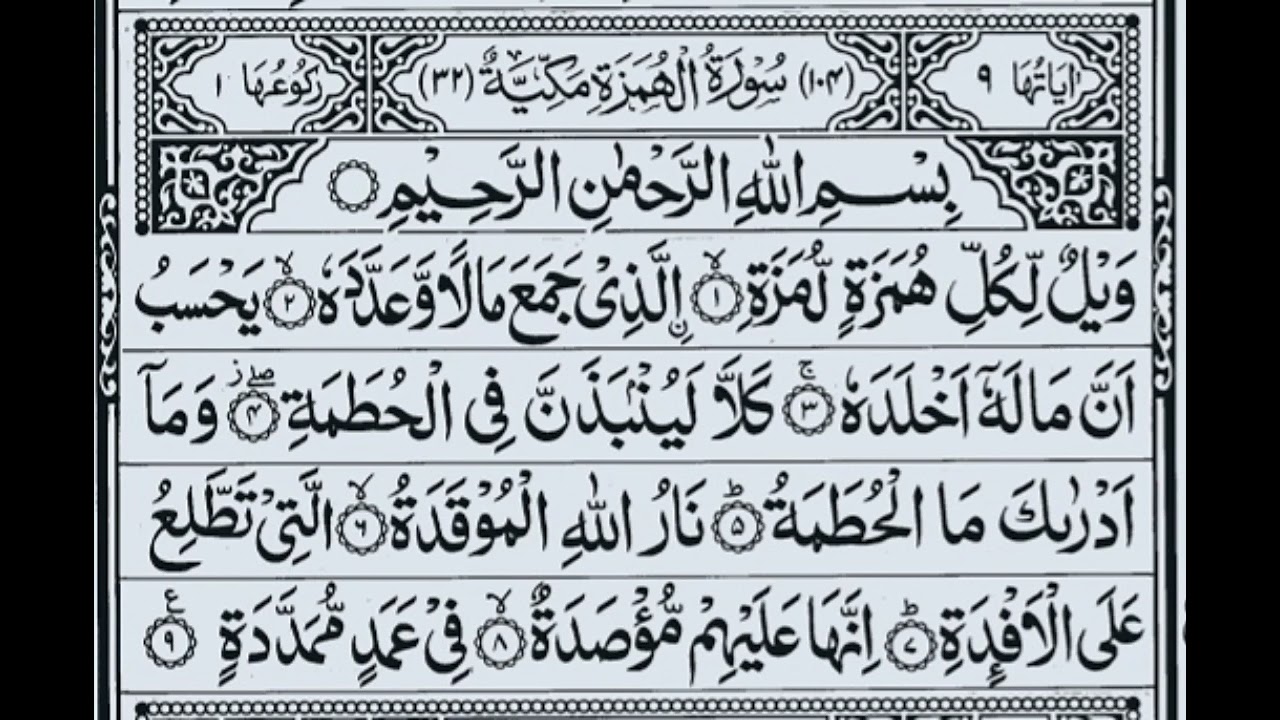 اٰيَاتُهَا ٩ (١٠٤) سُوْرَةُ الْهُمَزَةِ مَكِّيَّةٌ (٣٢) رُكُوْعُهَا ١
بِسْمِ اللّٰهِ الرَّحْمٰنِ الرَّحِيْمِ
وَيْلٌ لِّكُلِّ هُمَزَةٍ لُّمَزَةِ ۙ﴿١﴾ ۨالَّذِىْ جَمَعَ مَالًا وَّعَدَّدَهٗ ۙ﴿٢﴾ يَحْسَبُ
اَنَّ مَالَهٗۤ اَخْلَدَهٗ ۚ﴿٣﴾ كَلَّا لَيُنْۢبَذَنَّ فِى الْحُطَمَةِ ۖز﴿٤﴾ وَمَاۤ
اَدْرٰىكَ مَا الْحُطَمَةُ ؕ﴿٥﴾ نَارُ اللّٰهِ الْمُوْقَدَةُ ۙ﴿٦﴾ الَّتِىْ تَطَّلِعُ
عَلَى الْاَفْـِٕدَةِ ؕ﴿٧﴾ اِنَّهَا عَلَيْهِمْ مُّؤْصَدَةٌ ۙ﴿٨﴾ فِىْ عَمَدٍ مُّمَدَّدَةٍ ع﴿٩﴾